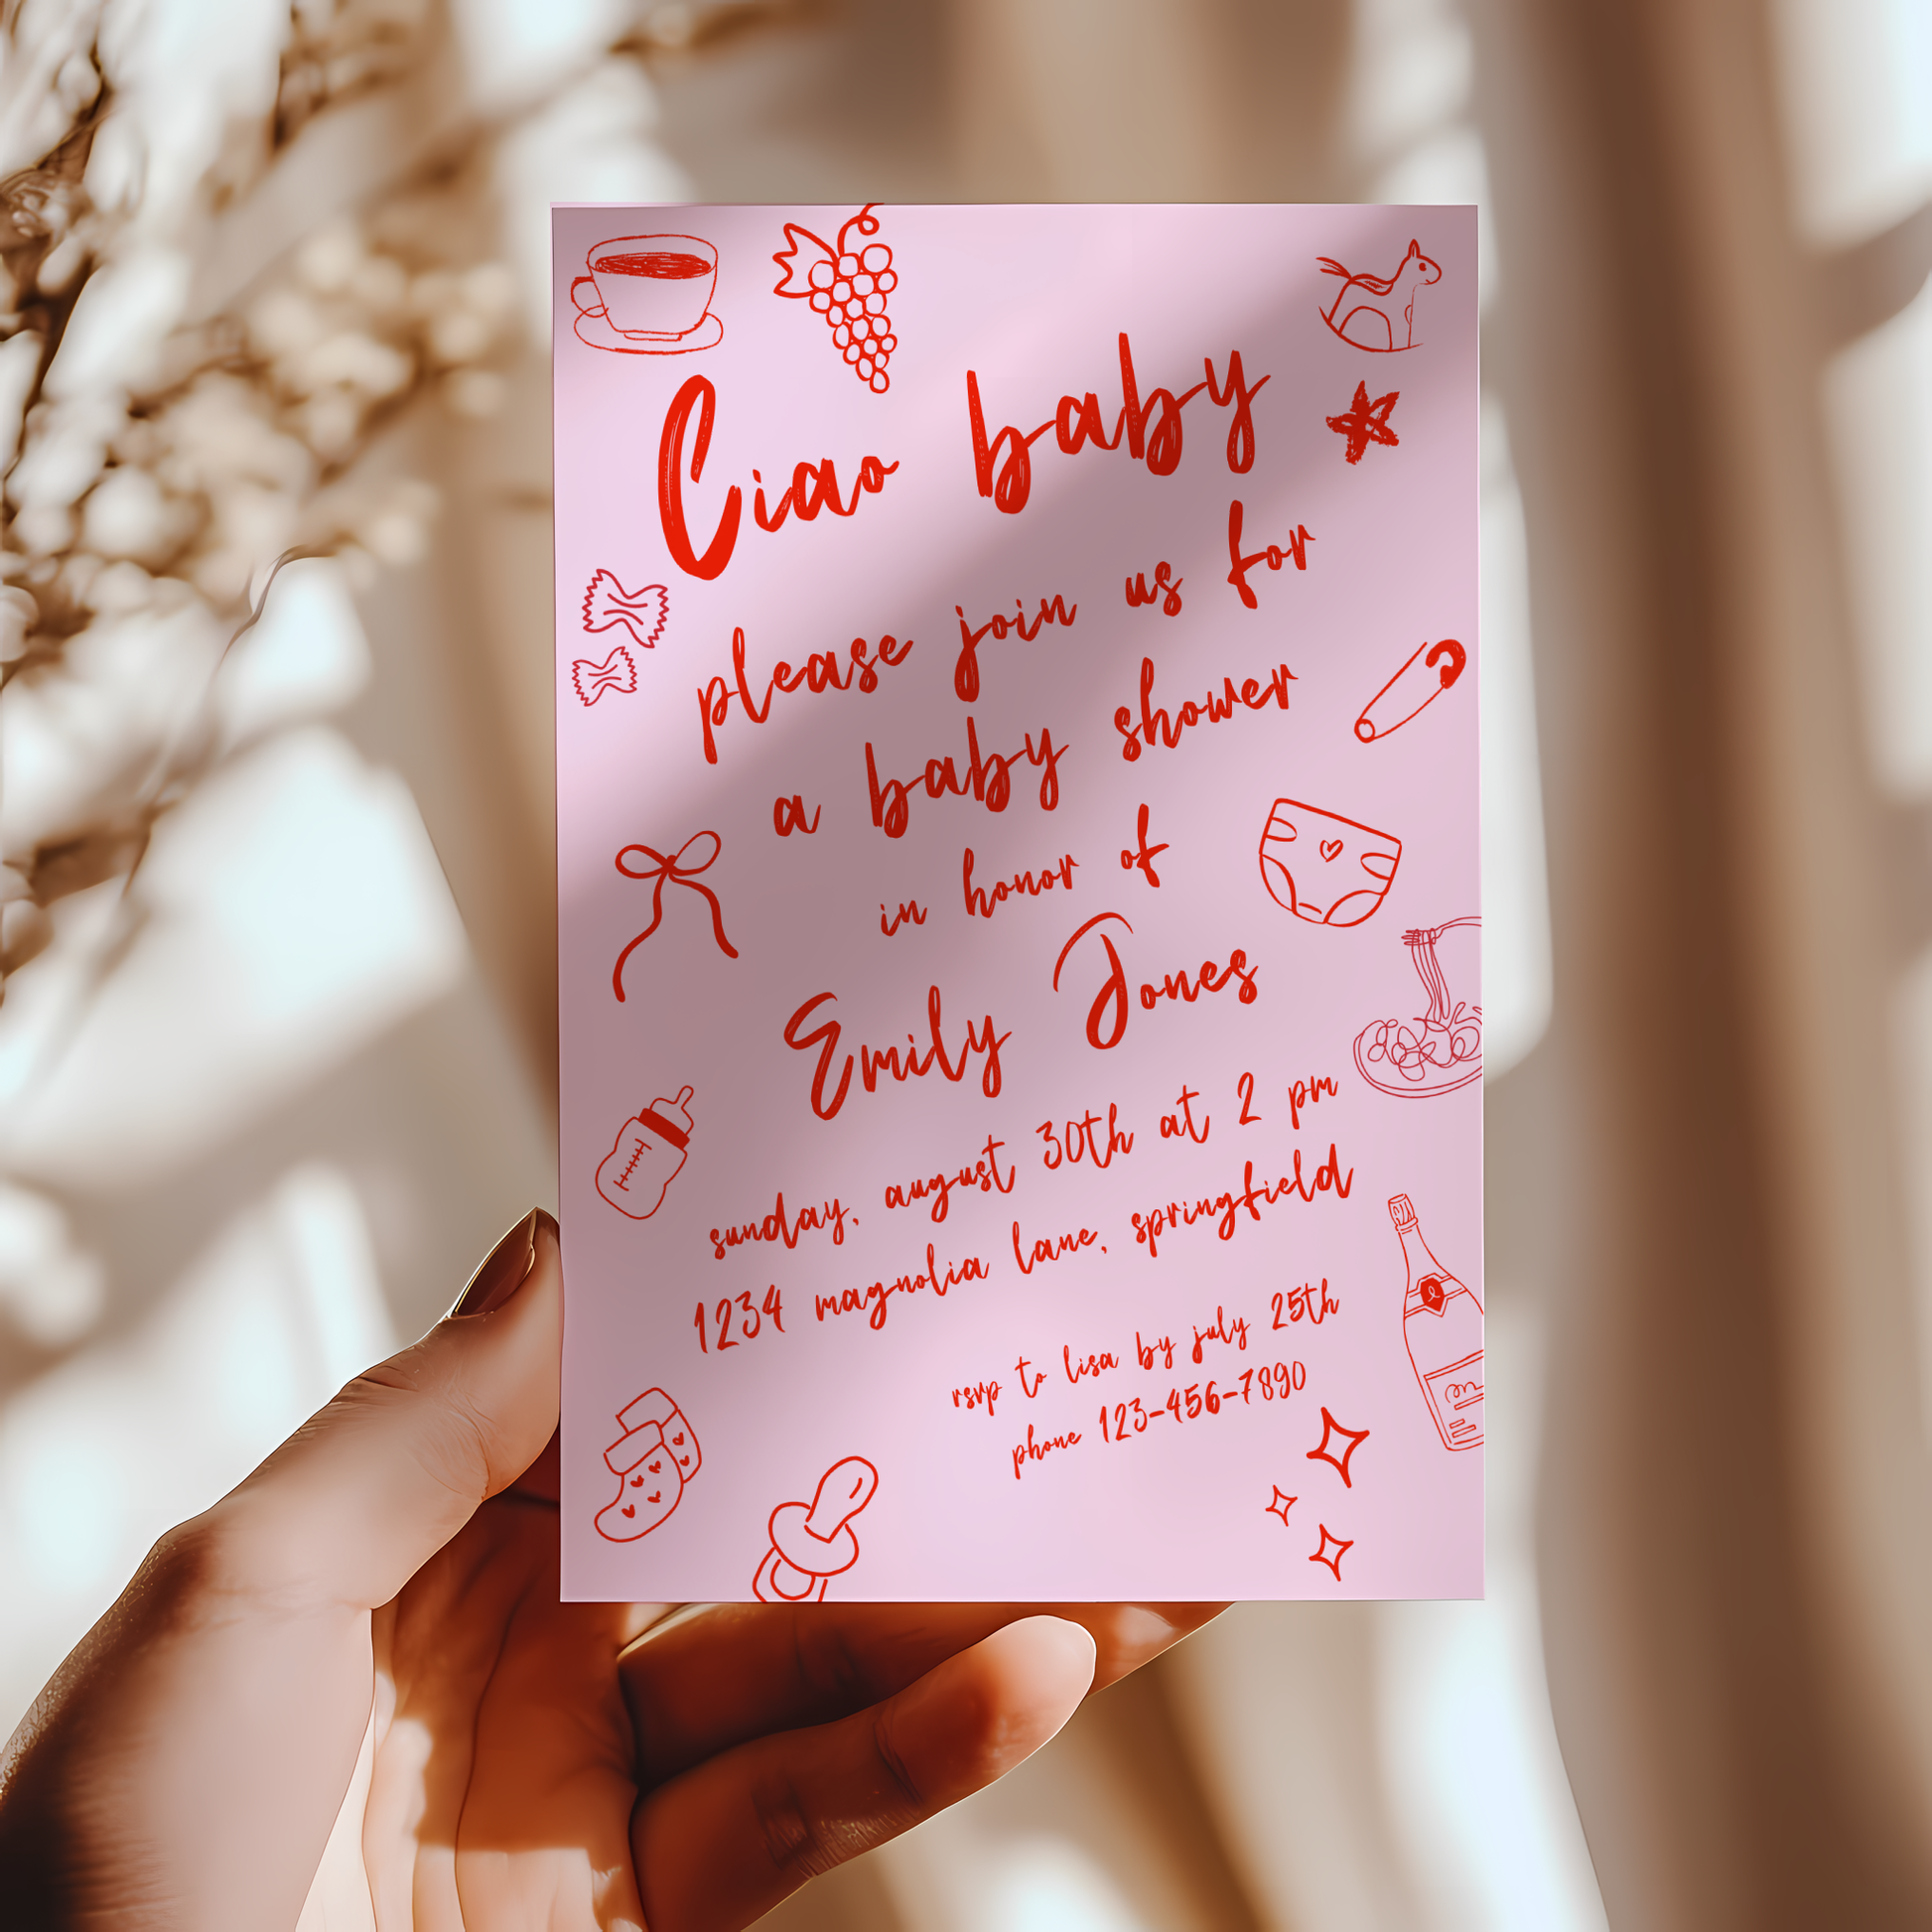 Ciao baby
please join us for
a baby shower
in honor of
Emily Jones
sunday, august 30th at 2 pm
1234 magnolia lane, springfield
rsvp to lisa by july 25th
phone 123-456-7890